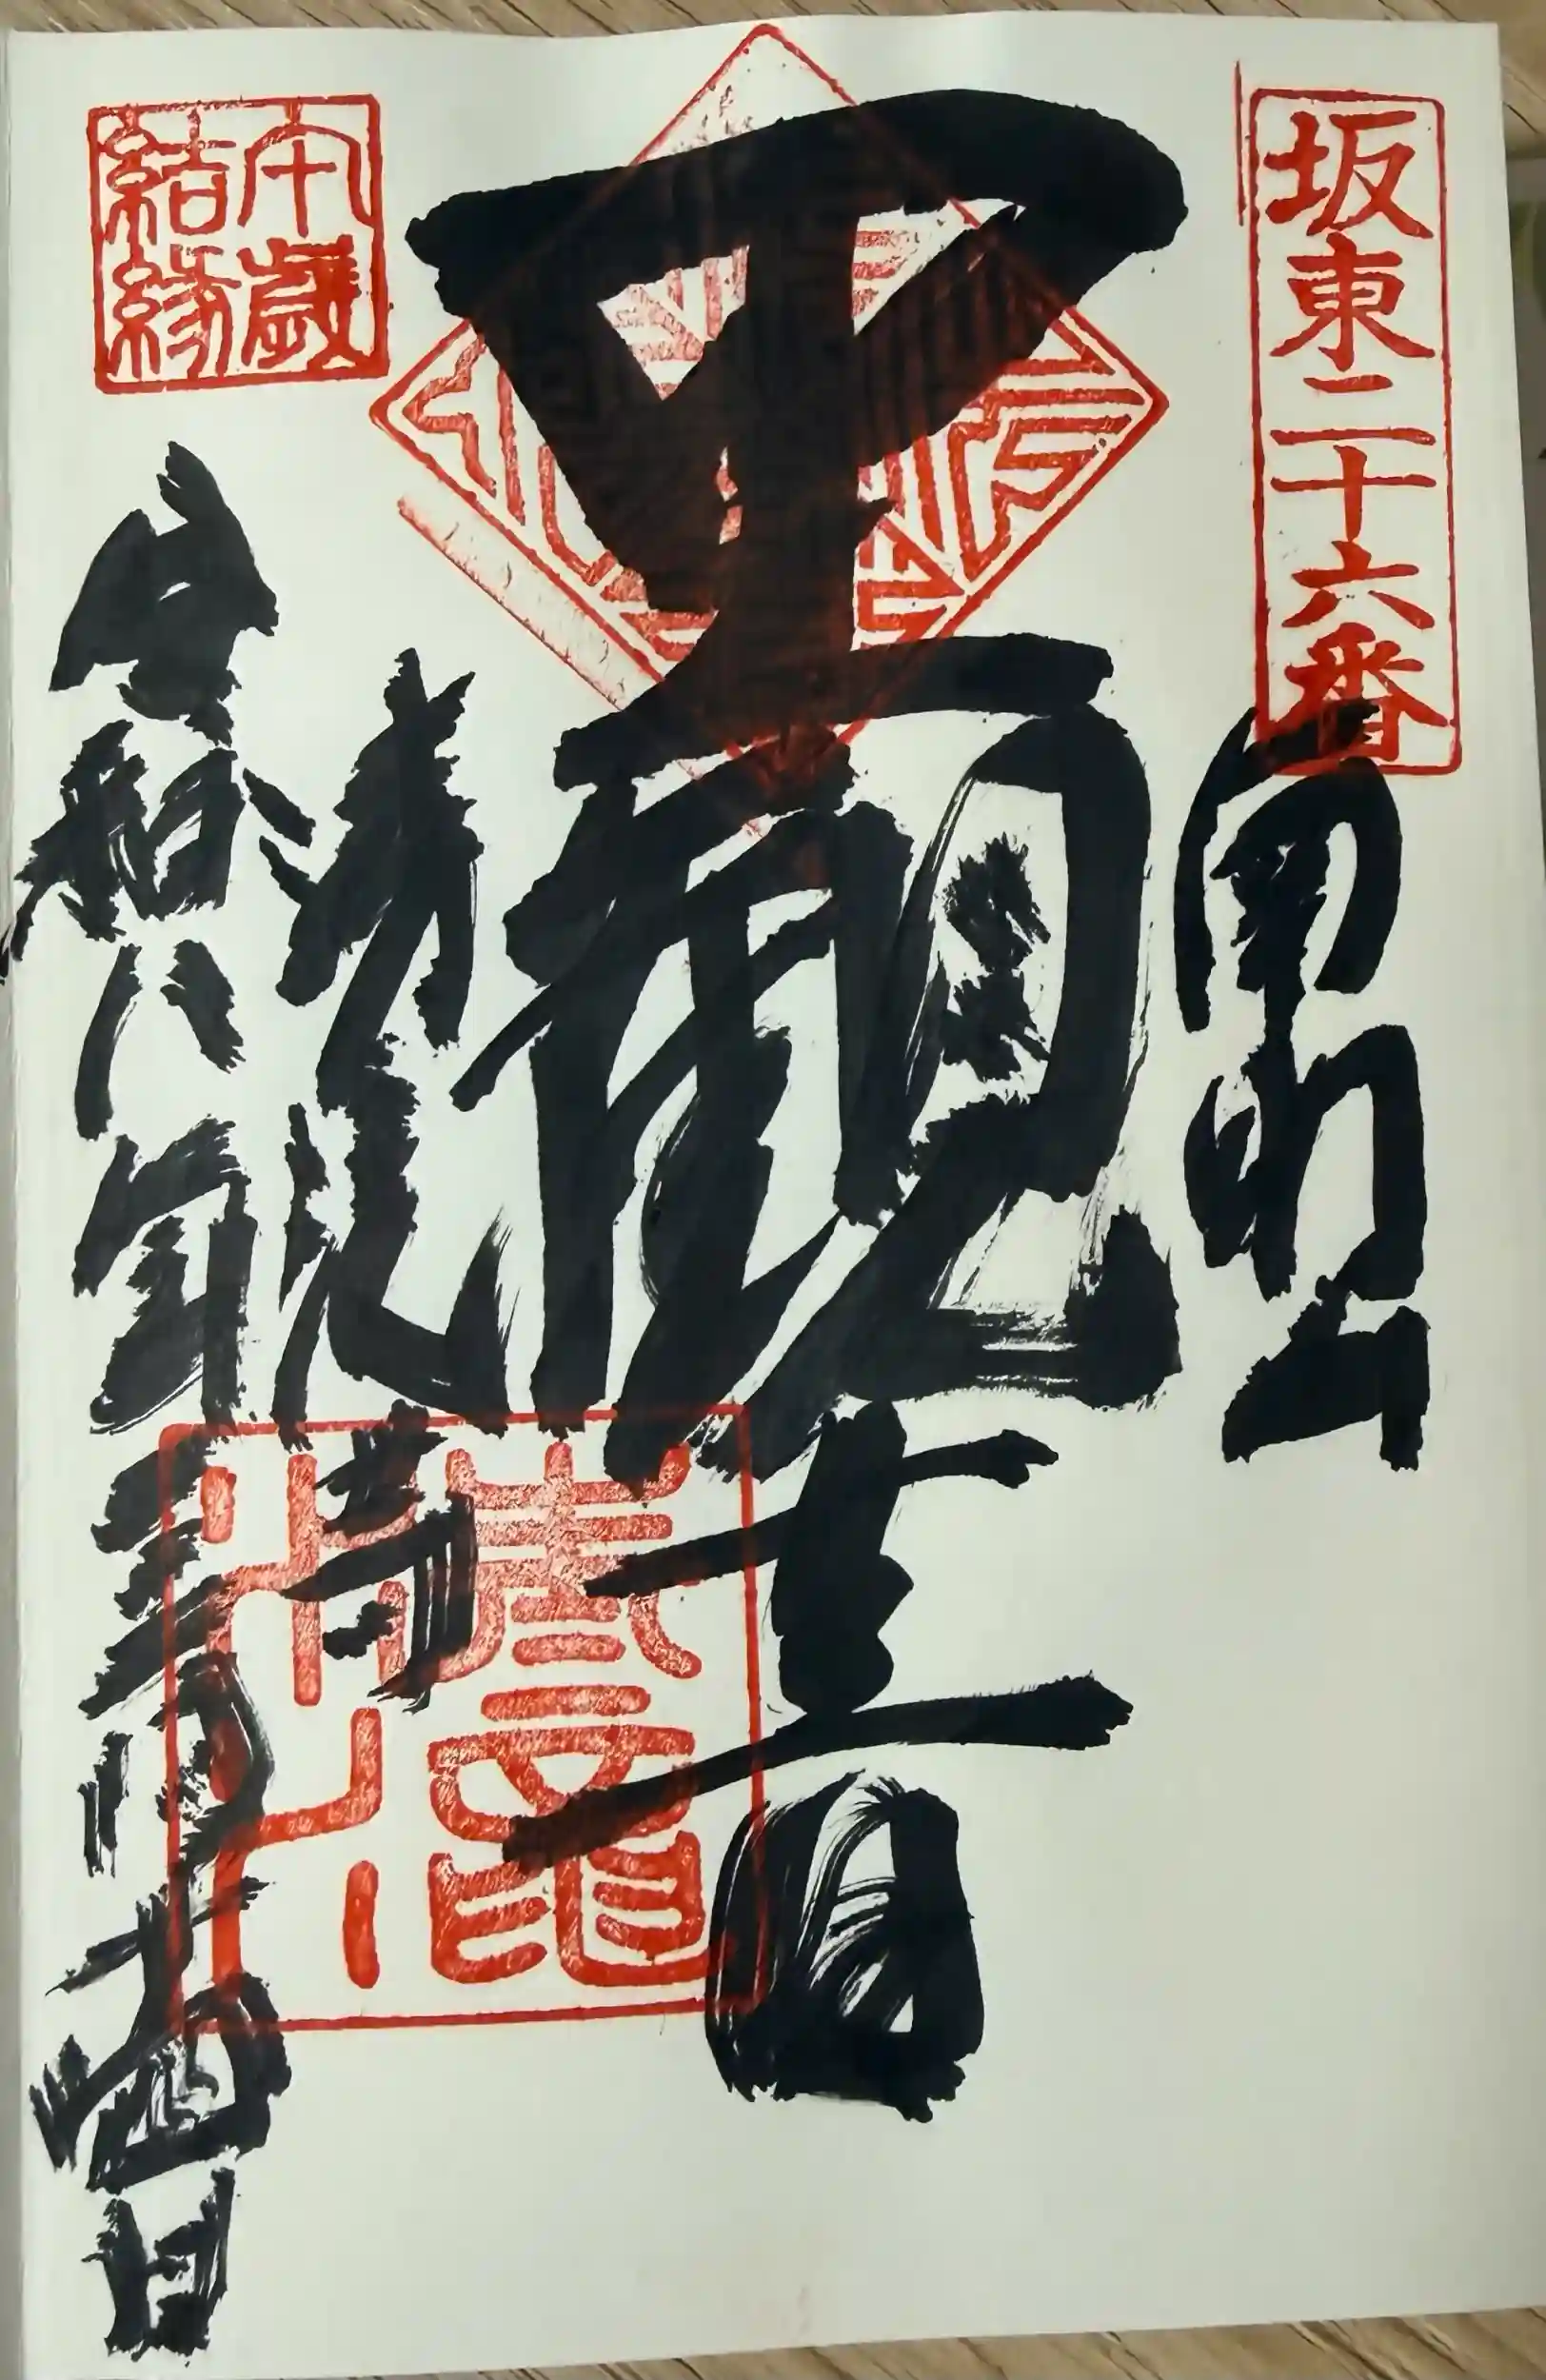 坂東二十六番
南明山
聖観音
清瀧寺
午歳
結縁
令和八年三月日